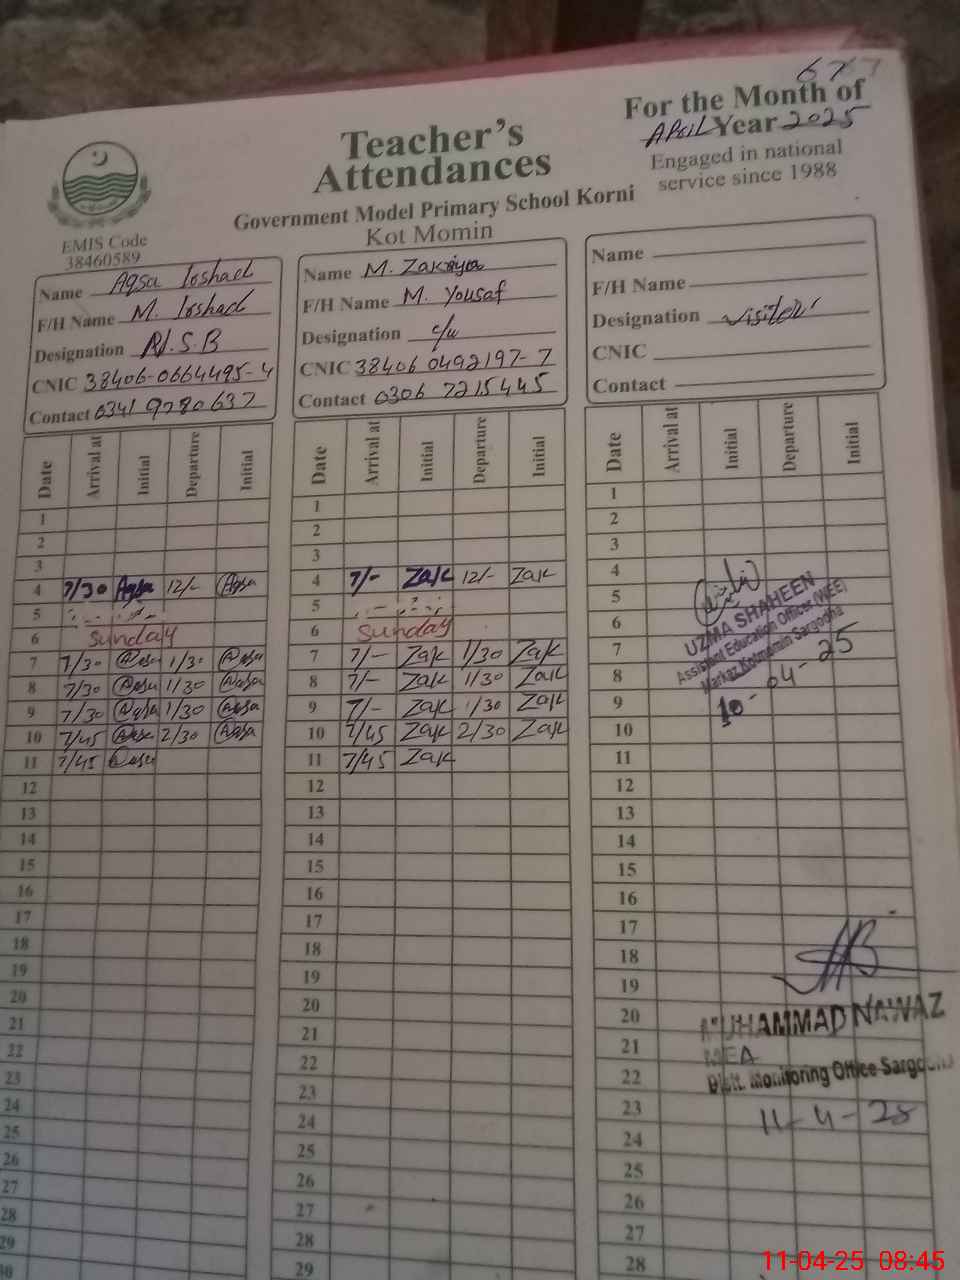 67
For the Month of
APRIL Year 2025
Engaged in national
service since 1988
Teacher's
Attendances
Government Model Primary School Korni
Kot Momin
EMIS Code
38460589
Name Aqsa Irshad
F/H Name M. Irshad
Designation
CNIC 38406-0664495-4
Contact 0341 9780637
Name M. Zakriya
F/H Name M. Yousaf
Designation c/w
CNIC 38406 0492197-7
Contact 0306 7215445
Name
F/H Name
Designation Visiter
CNIC
Contact
Date Arrival at Initial Departure Initial
1
2
3
4 7/30 Aqsa 12/- Aqsa
5
6 Sunday
7 7/30 Aqsa 1/30 Aqsa
8 7/30 Aqsa 1/30 Aqsa
9 7/30 Aqsa 1/30 Aqsa
10 7/45 Aqsa 2/30 Aqsa
11 7/45 Aqsa
12
13
14
15
16
17
18
19
20
21
22
23
24
25
26
27
28
29
30
Date Arrival at Initial Departure Initial
1
2
3
4 7/- Zak 12/- Zak
5
6 Sunday
7 7/- Zak 1/30 Zak
8 7/- Zak 1/30 Zak
9 7/- Zak 1/30 Zak
10 7/45 Zak 2/30 Zak
11 7/45 Zak
12
13
14
15
16
17
18
19
20
21
22
23
24
25
26
27
28
29
Date Arrival at Initial Departure Initial
1
2
3
4
5
6
7
8
9
10
11
12
13
14
15
16
17
18
19
20
21
22
23
24
25
26
27
28
UZMA SHAHEEN
Assistant Education Officer (WEE)
Markaz Kotmomin Sargodha
10-04-25
MUHAMMAD NAWAZ
MEA
Distt. Monitoring Office Sargodha
11-4-28
11-04-25 08:45